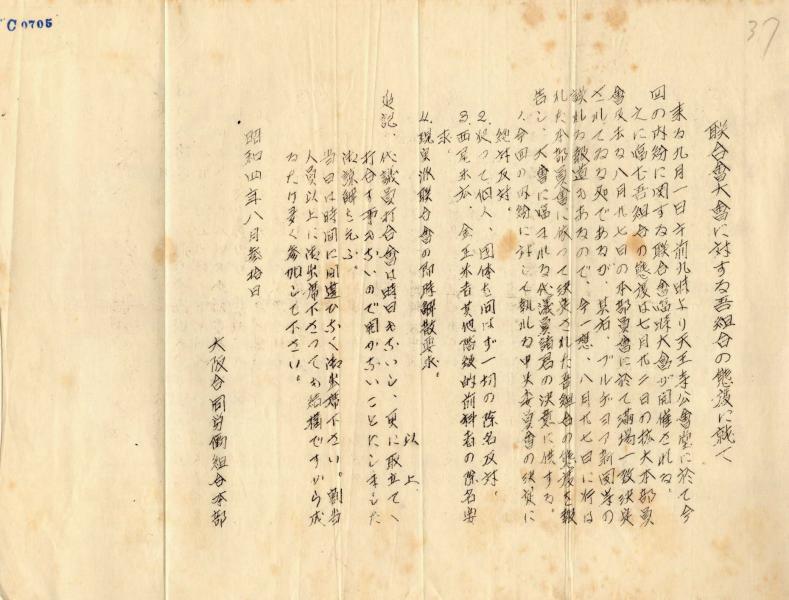 C0705
37
聯合會大會に対する吾組合の態度に就て
来る九月一日午前九時より天王寺公會堂に於て今
回の内紛に関する聯合會臨時大會が開催される。
之に臨む吾組合の態度は七月九二日の拡大本部員
會及本る八月九七日の本部員會に於て満場一致決定
されてゐる処であるが、其右、ブルヂョア新聞等の
談れる報道もあるので、今一應、八月九七日に行は
れた本部員會に依って決定された吾組合の態度を報
告し、大會に臨まれる代議員諸君の決意に供する。
1. 今回の内紛に対して執れる中央委員會の決定に
絶対反対。
2. 従って個人、団体を問はず一切の除名反対。
3. 西尾末広、金正米吉其他階級的前科者の除名要
求。
4. 現実派聯合會の即時解散要求。
以上
追記、代議員打合會は時日もないし、更に取立てゝ
打合す事もないので開かないことにしました
御諒解を乞ふ。
当日は時間に間違ひなく御出席下さい。割当
人員以上に御出席下さっても結構ですから成
るたけ多く参加して下さい。
昭和四年八月参拾日
大阪合同労働組合本部